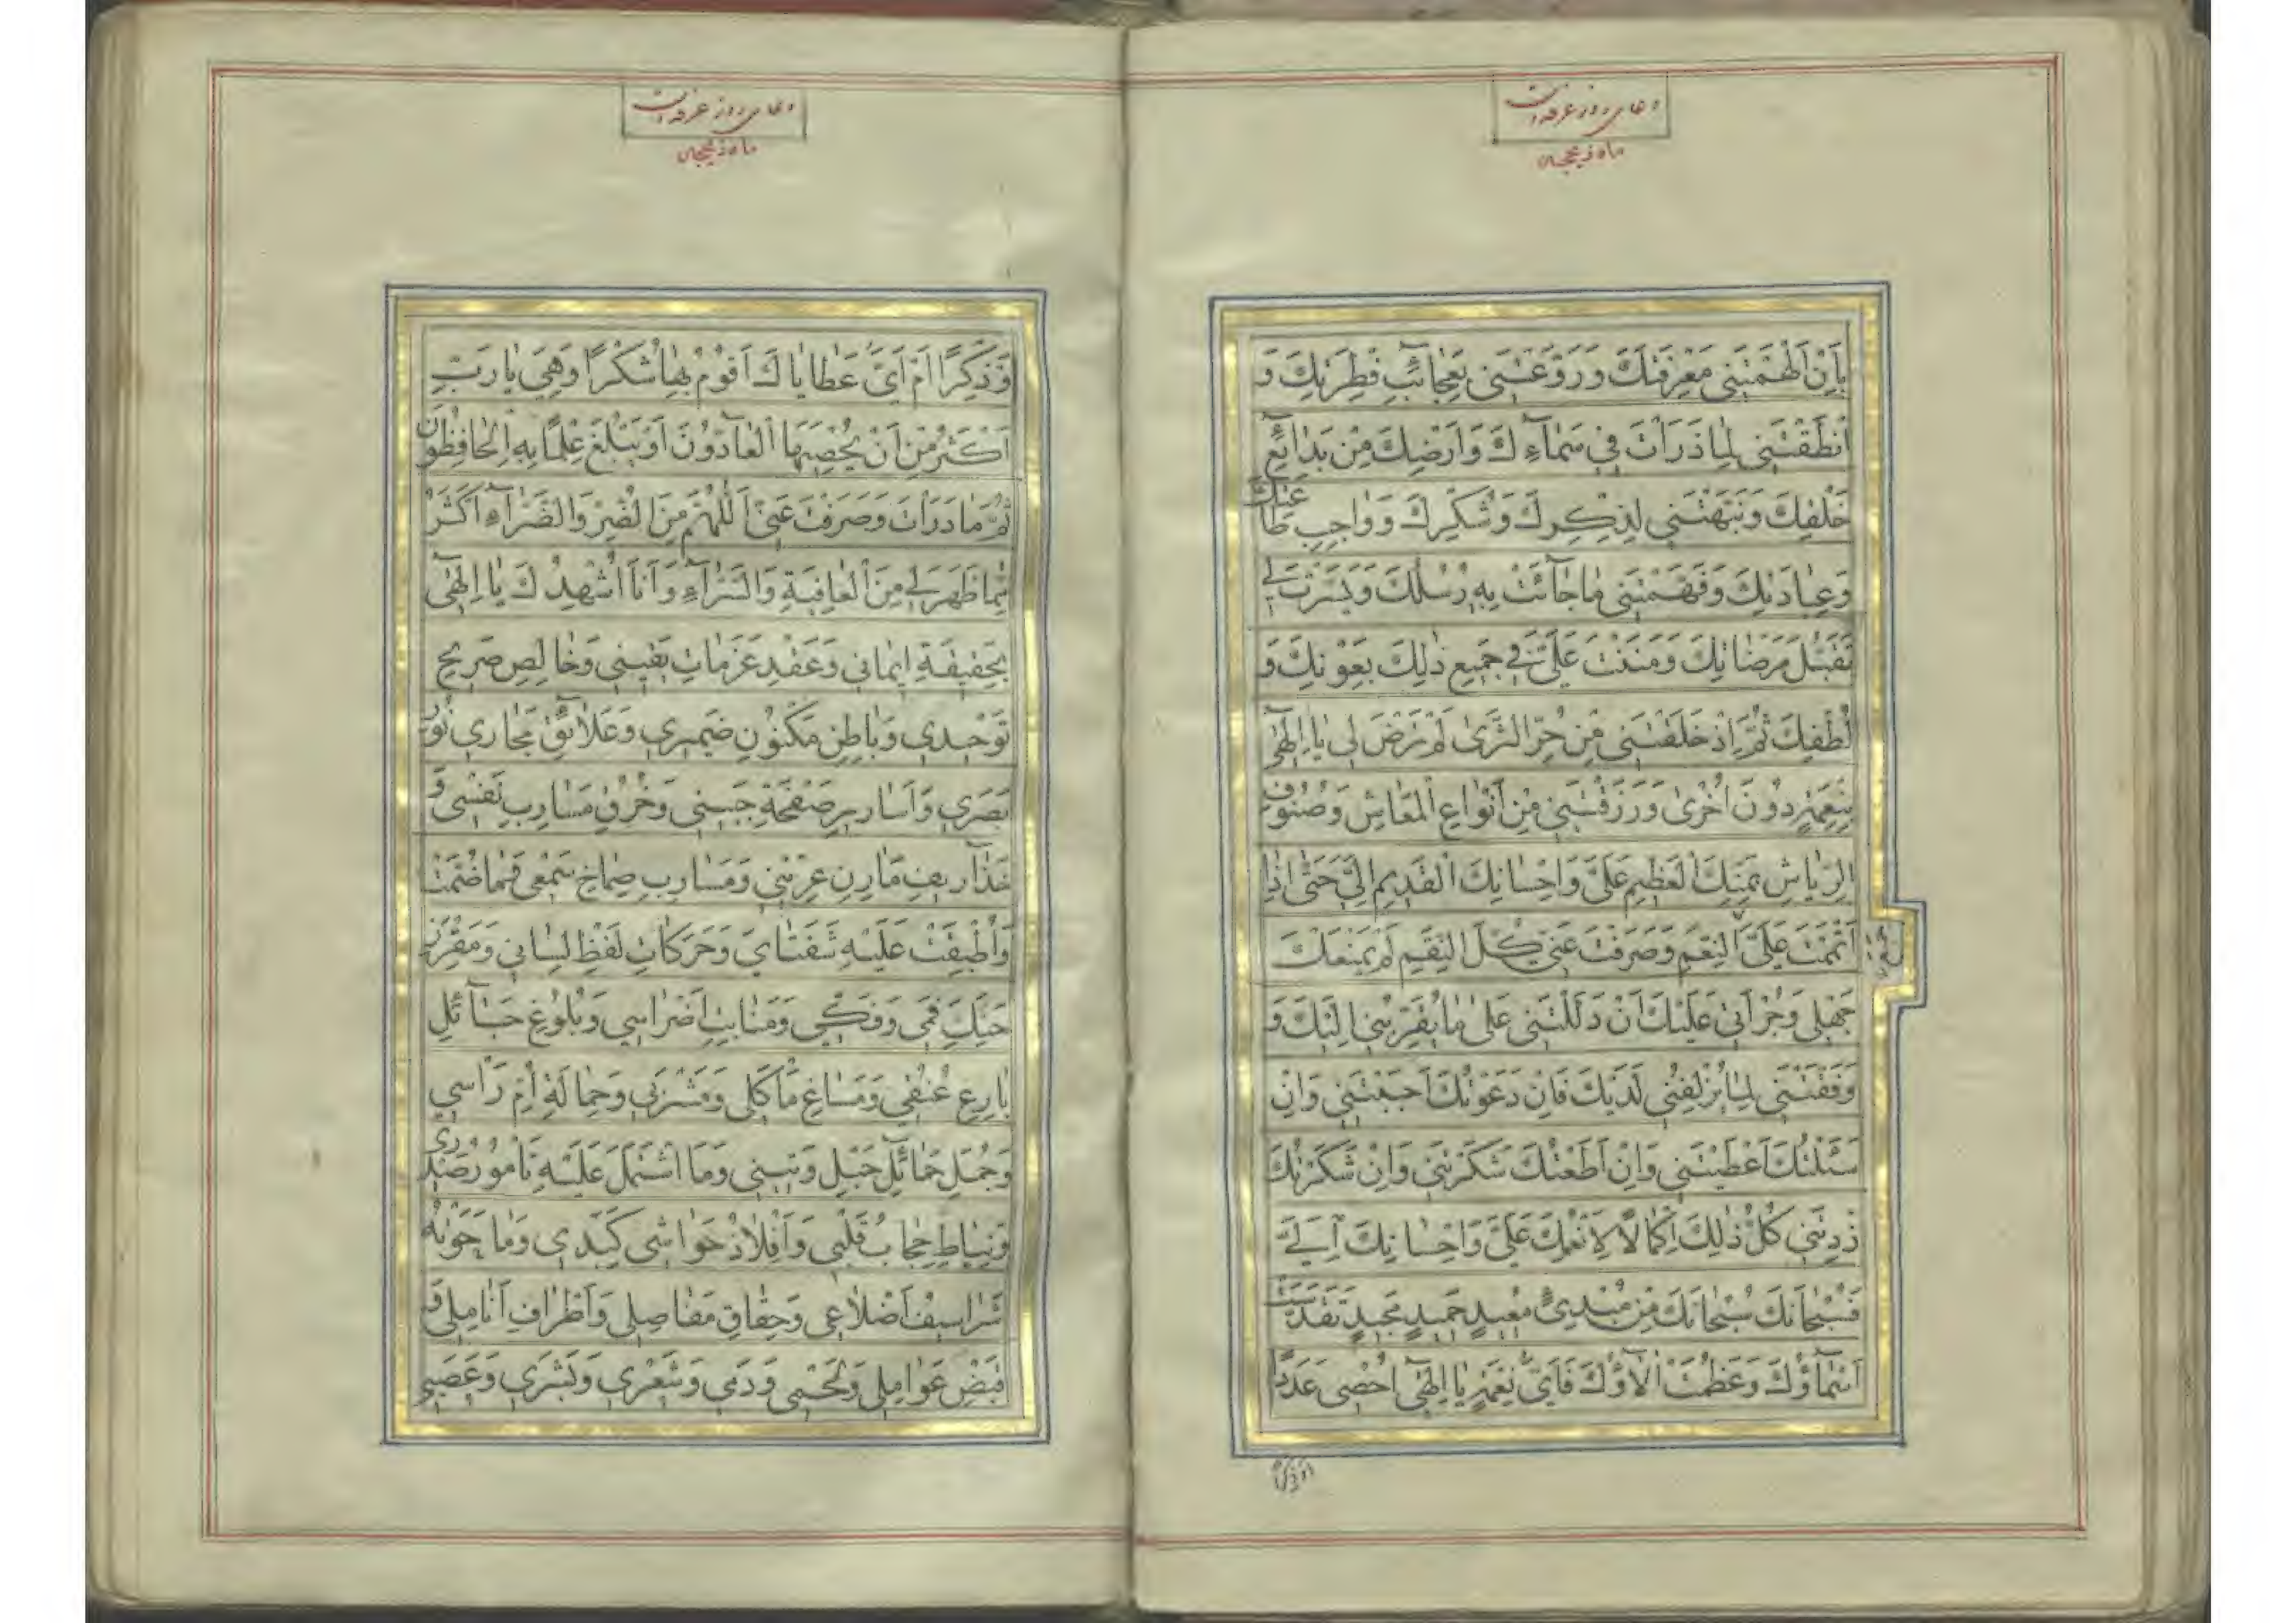 دعای روز عرفه است
ماه ذیحجه
بِاَنْ اَلْهَمْتَنی مَعْرِفَتَكَ وَرَوَّعْتَنی بِعَجائِبِ فِطْرَتِكَ وَ
اَنْطَقْتَنی لِما ذَرَاْتَ فی سَمآءِكَ وَاَرْضِكَ مِنْ بَدائِعِ
خَلْقِكَ وَنَبَّهْتَنی لِذِكْرِكَ وَشُكْرِكَ وَواجِبِ طاعَتِكَ
وَعِبادَتِكَ وَفَهَّمْتَنی ماجآئَتْ بِهِ رُسُلُكَ وَيَسَّرْتَ لی
تَقَبُّلَ مَرْضاتِكَ وَمَنَنْتَ عَلَیَّ فی جَمیعِ ذٰلِكَ بِعَوْنِكَ وَ
لُطْفِكَ ثُمَّ اِذْ خَلَقْتَنی مِنْ حُرِّ الثَّریٰ لَمْ تَرْضَ لی یا اِلٰهی
بِنِعْمَةٍ دُونَ اُخْریٰ وَرَزَقْتَنی مِنْ اَنْواعِ الْمَعاشِ وَصُنُوفِ
الرِّیاشِ بِمَنِّكَ الْعَظیمِ عَلَیَّ وَاِحْسانِكَ الْقَدیمِ اِلَیَّ حَتّٰی اِذا
اَتْمَمْتَ عَلَیَّ النِّعَمَ وَصَرَفْتَ عَنّی كُلَّ النِّقَمِ لَمْ یَمْنَعْكَ
جَهْلی وَجُرْاَتی عَلَیْكَ اَنْ دَلَلْتَنی عَلیٰ ما یُقَرِّبُنی اِلَیْكَ وَ
وَفَّقْتَنی لِما یُزْلِفُنی لَدَیْكَ فَاِنْ دَعَوْتُكَ اَجَبْتَنی وَاِنْ
سَئَلْتُكَ اَعْطَیْتَنی وَاِنْ اَطَعْتُكَ شَكَرْتَنی وَاِنْ شَكَرْتُكَ
زِدْتَنی كُلُّ ذٰلِكَ اِكْمالًا لِاَنْعُمِكَ عَلَیَّ وَاِحْسانِكَ اِلَیَّ
فَسُبْحانَكَ سُبْحانَكَ مِنْ مُبْدِئٍ مُعیدٍ حَمیدٍ مَجیدٍ تَقَدَّسَتْ
اَسْمآؤُكَ وَعَظُمَتْ اٰلآؤُكَ فَاَیُّ نِعَمِكَ یا اِلٰهی اُحْصی عَدَدًا
دعای روز عرفه است
ماه ذیحجه
وَذِكْرًا اَمْ اَیُّ عَطایاكَ اَقُومُ بِها شُكْرًا وَهِیَ یا رَبِّ
اَكْثَرُ مِنْ اَنْ یُحْصِیَهَا الْعآدُّونَ اَوْ یَبْلُغَ عِلْمًا بِهَا الْحافِظُونَ
ثُمَّ ما دَرَاْتَ وَصَرَفْتَ عَنّی اَللّٰهُمَّ مِنَ الضُّرِّ وَالضَّرّآءِ اَكْثَرُ
مِمّا ظَهَرَ لی مِنَ الْعافِیَةِ وَالسَّرّآءِ وَاَنَا اُشْهِدُكَ یا اِلٰهی
بِحَقیقَةِ ایمانی وَعَقْدِ عَزَماتِ یَقینی وَخالِصِ صَریحِ
تَوْحیدی وَباطِنِ مَكْنُونِ ضَمیری وَعَلائِقِ مَجاری نُورِ
بَصَری وَاَساریرِ صَفْحَةِ جَبینی وَخُرْقِ مَسارِبِ نَفْسی وَ
خَذاریفِ مارِنِ عِرْنینی وَمَسارِبِ صِماخِ سَمْعی وَما ضُمَّتْ
وَاَطْبَقَتْ عَلَیْهِ شَفَتایَ وَحَرَكاتِ لَفْظِ لِسانی وَمَغْرَزِ
حَنَكِ فَمی وَفَكّی وَمَنابِتِ اَضْراسی وَبُلُوغِ حَبآئِلِ
بارِعِ عُنُقی وَمَساغِ مَاْكَلی وَمَشْرَبی وَحِمالَةِ اُمِّ رَاْسی
وَجُمَلِ حَمائِلِ حَبْلِ وَتینی وَمَا اشْتَمَلَ عَلَیْهِ تامُورُ صَدْری
وَنِیاطِ حِجابِ قَلْبی وَاَفْلاذُ حَواشی كَبِدی وَما حَوَتْهُ
شَراسیفُ اَضْلاعی وَحِقاقِ مَفاصِلی وَاَطْرافِ اَنامِلی وَ
قَبْضِ عَوامِلی وَلَحْمی وَدَمی وَشَعْری وَبَشَری وَعَصَبی